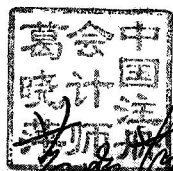 中国注册
会计师
葛晓